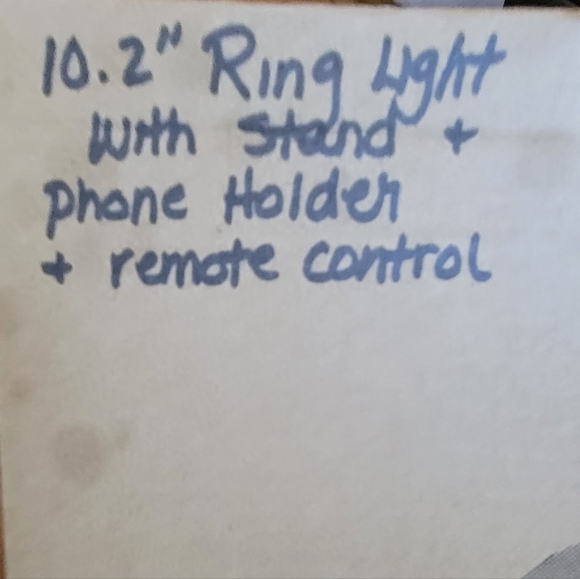 10.2" Ring Light
with Stand +
phone Holder
+ remote control